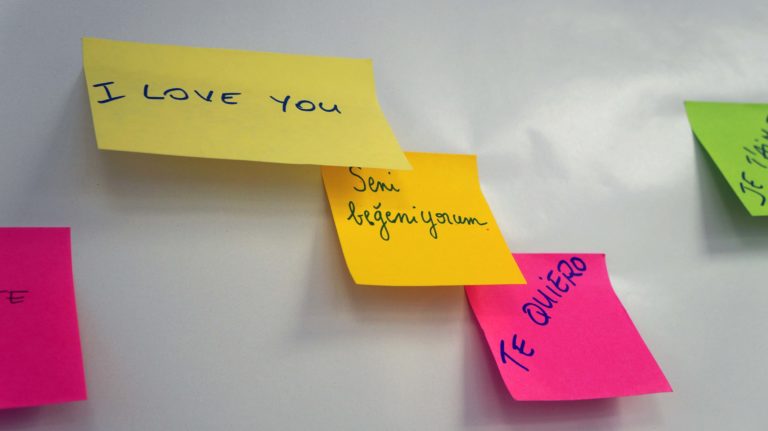 I LOVE YOU
Seni
beğeniyorum.
TE QUIERO
JE T'AIME
TE